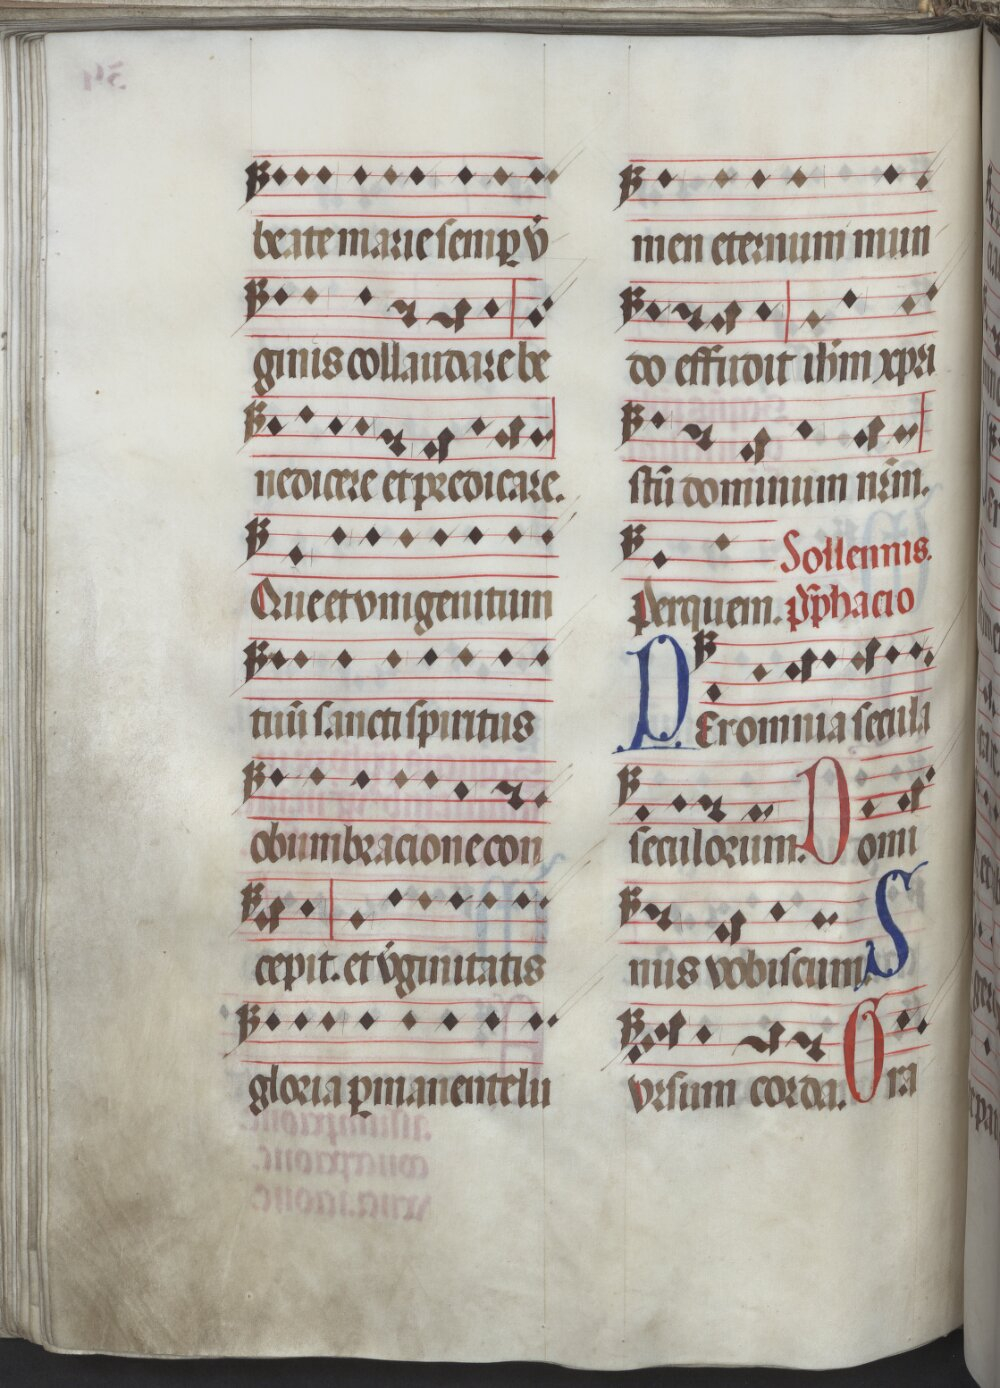 beate marie semꝑ v̉
ginis collaudare be
nedicere et predicare.
Que et vnigenitum
tuū sancti spiritus
obumbracione con
cepit. et v̉ginitatis
gloria ꝑmanente lu
men eternum mun
do effudit ihm̄ xpri
stū dominum nr̄m.
Sollennis.
Per quem. p̄phacio
Per omnia secula
seculorum. Domi
nus vobiscum. S
vrsum corda. Gra